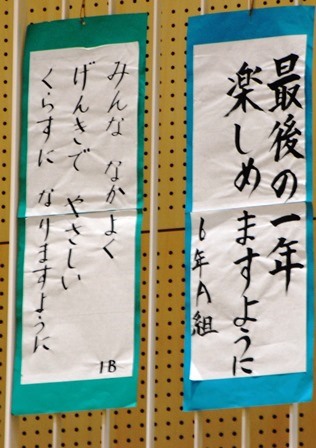 最後の一年
楽しめますように
6年A組
みんな なかよく
げんきで やさしい
くらすに なりますように
1-B